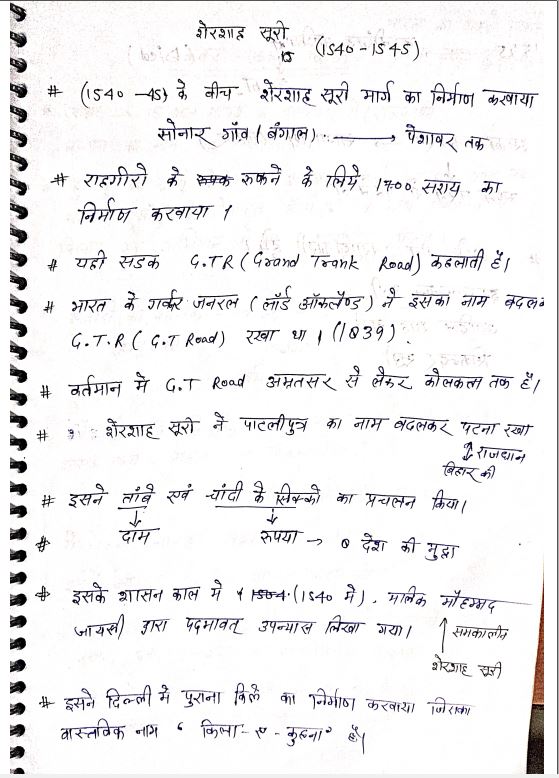 शेरशाह सूरी
(1540-1545)
# (1540-45) के बीच शेरशाह सूरी मार्ग का निर्माण करवाया
सोनार गाँव (बंगाल) → पेशावर तक
# राहगीरो के रुकने के लिये 1700 सराय का
निर्माण करवाया।
# यही सडक G.T.R (Grand Trank Road) कहलाती है।
# भारत के गर्वनर जनरल (लॉर्ड ऑकलैण्ड) ने इसका नाम बदलक
G.T.R (G.T Road) रखा था। (1839).
# वर्तमान मे G.T Road अमृतसर से लेकर कोलकत्ता तक है।
# शेरशाह सूरी ने पाटलीपुत्र का नाम बदलकर पटना रखा
राजधान
बिहार की
# इसने तांबे एवं चांदी के सिक्को का प्रचलन किया।
# दाम रुपया → देश की मुद्रा
# इसके शासन काल मे (1540 मे). मालिक मौहम्मद
जायसी द्वारा पदमावत उपन्यास लिखा गया। ↑ समकालीन
शेरशाह सूरी
# इसने दिल्ली मे पुराना किले का निर्माण करवाया जिसका
वास्तविक नाम "किला-ए-कुहना" है।